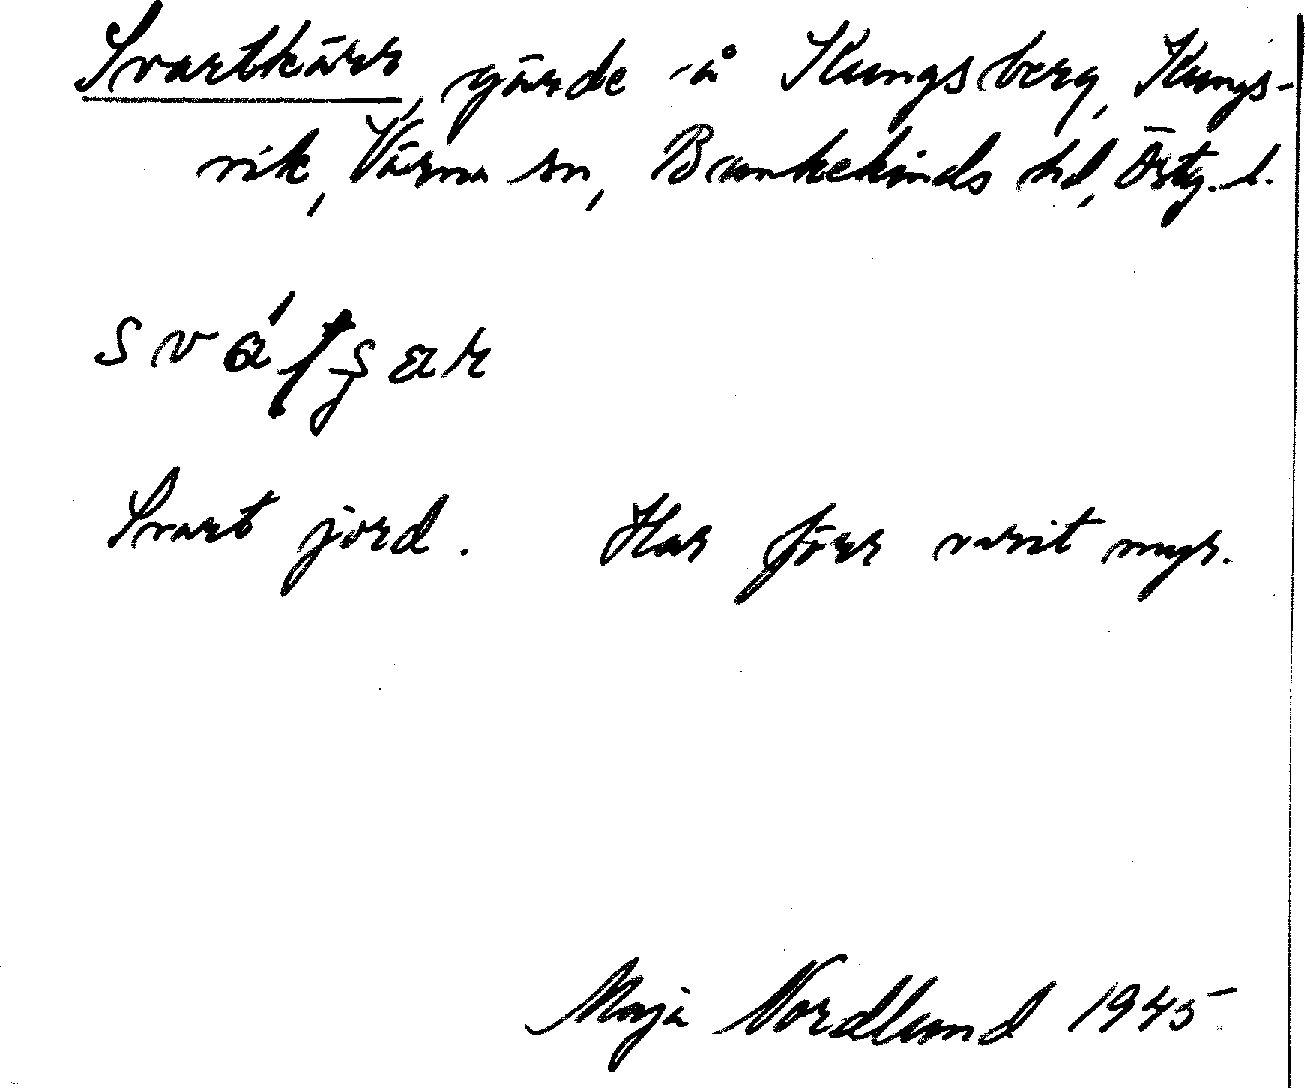 Svartkärr, gärde å Kungsberg, Kungs-
vik, Värna sn, Bankekinds hd, Östg. l.
Svart jord. Har förr varit myr.
Maja Nordlund 1945